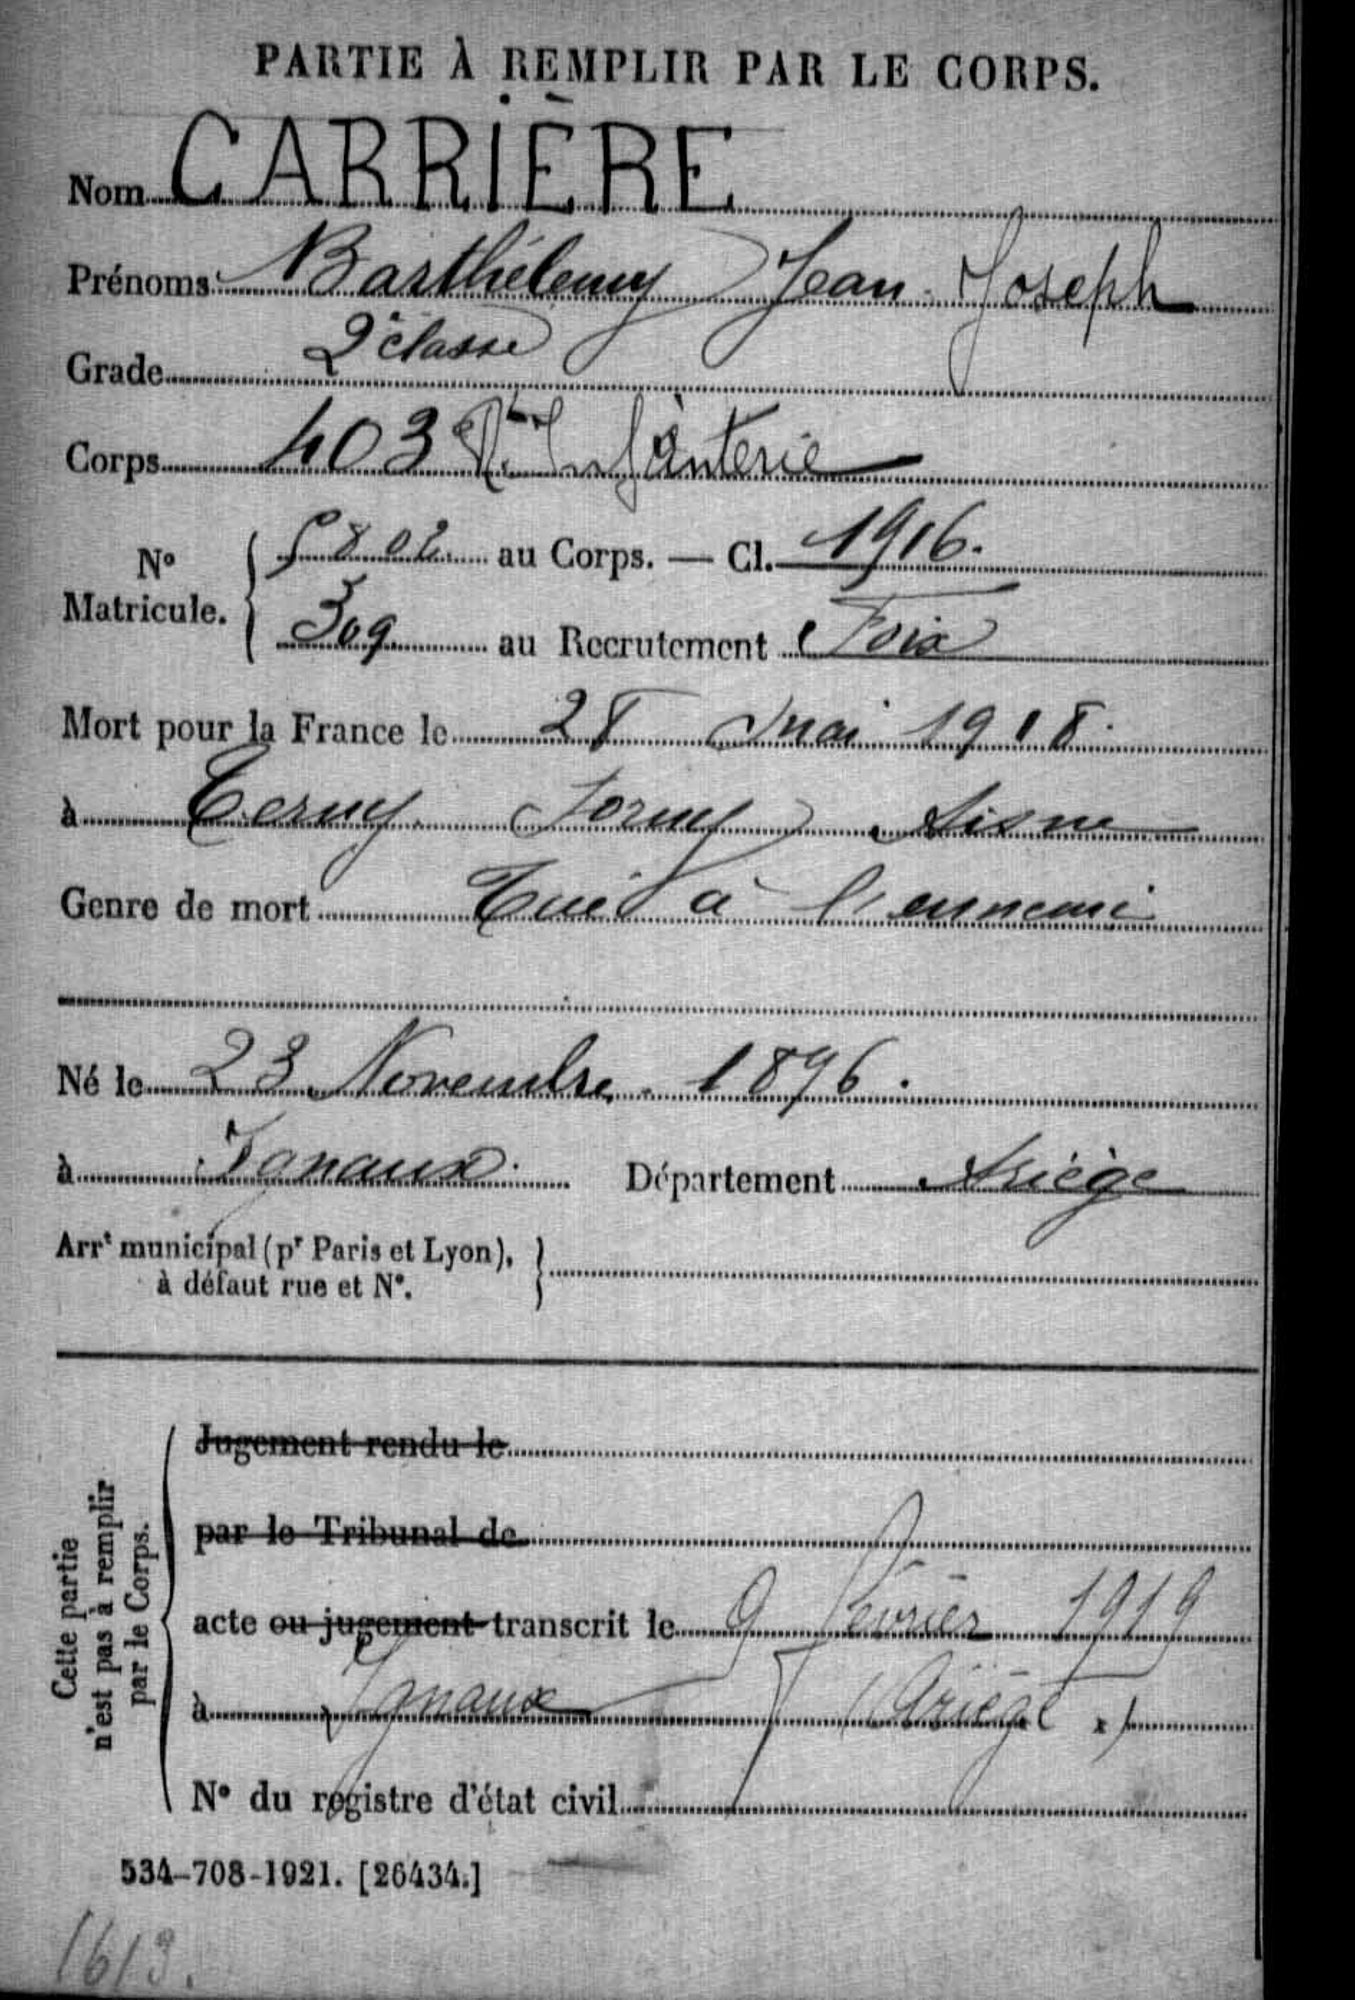 PARTIE À REMPLIR PAR LE CORPS.
Nom CARRIÈRE
Prénoms Barthélemy Jean Joseph
Grade 2e classe
Corps 403e Rt Infanterie
No Matricule. { 5802 au Corps. — Cl. 1916.
309 au Recrutement Foix
Mort pour la France le 28 mai 1918.
à Terny Sorny Aisne
Genre de mort Tué à l'ennemi
Né le 23 Novembre 1896.
à Ignaux. Département Ariège
Arrt municipal (pr Paris et Lyon), }
à défaut rue et No.
Cette partie
n'est pas à remplir
par le Corps.
Jugement rendu le
par le Tribunal de
acte ou jugement transcrit le 9 février 1919
à Ignaux (Ariège)
No du registre d'état civil
534-708-1921. [26434.]
1613.